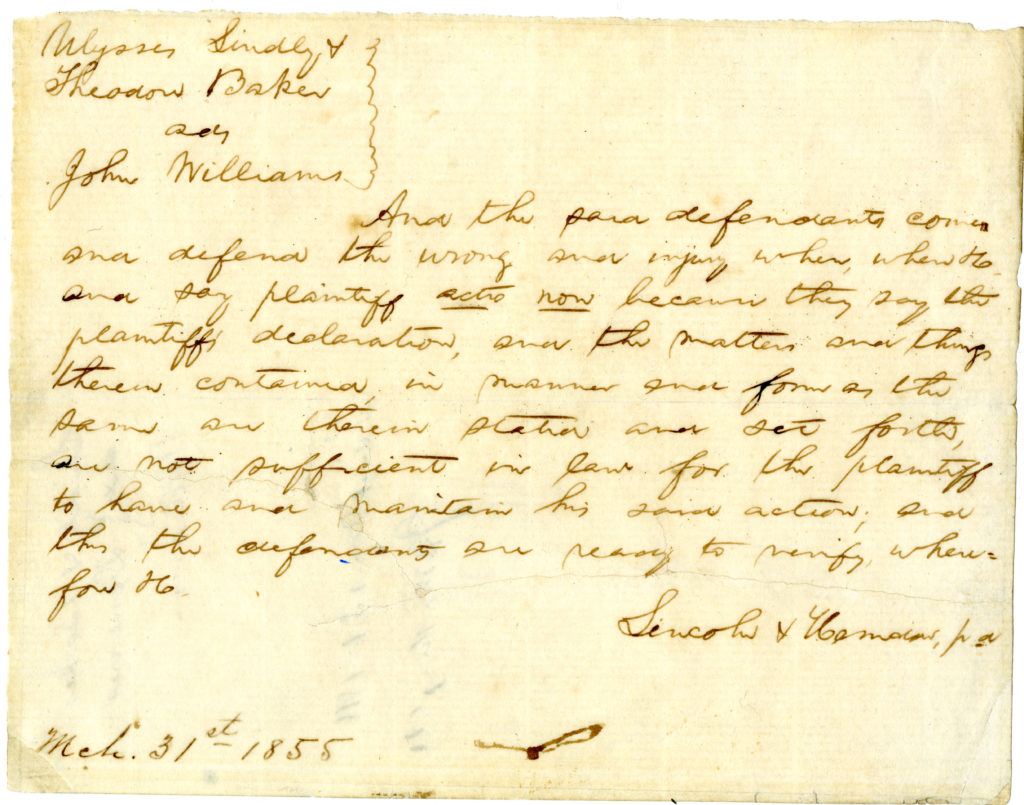 Ulysses Lindly &
Theodore Baker
ads
John Williams
And the said defendants comes
and defend the wrong and injury when, where &c
and say plaintiff actio non because they say the
plaintiffs declaration, and the matters and things
therein contained, in manner and form as the
same are therein stated and set forth,
are not sufficient in law for the plaintiff
to have and maintain his said action; and
this the defendants are ready to verify, where=
fore &c
Lincoln & Herndon, p d
Mch. 31st 1855